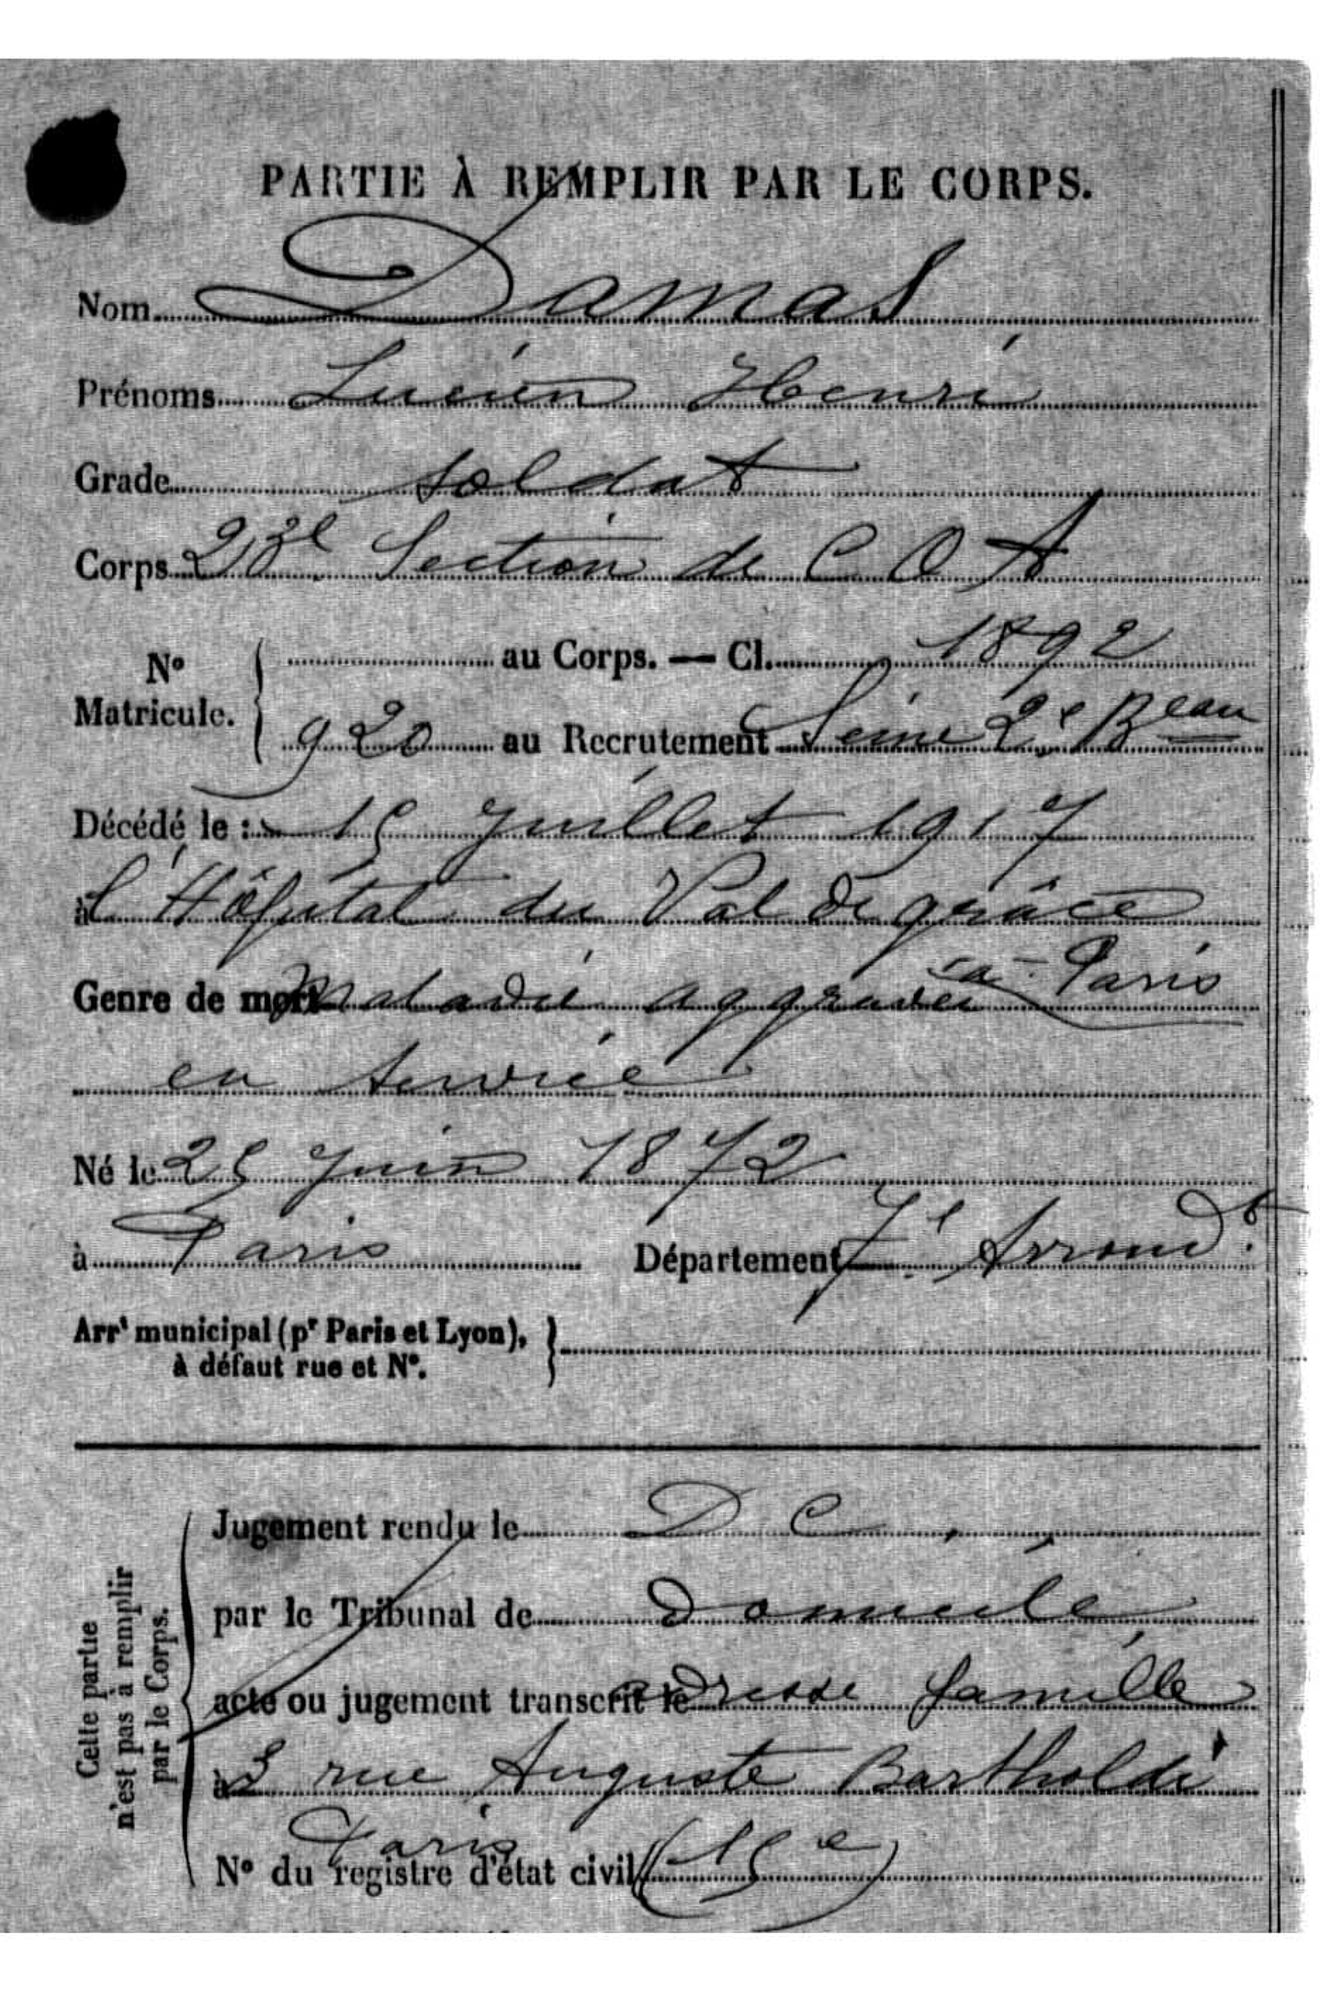 PARTIE À REMPLIR PAR LE CORPS.
Nom Damas
Prénoms Lucien Henri
Grade soldat
Corps 23e Section de C O A
N° Matricule. { au Corps. — Cl. 1892
920 au Recrutement Seine 2e Beau
Décédé le : 15 Juillet 1917
à l'Hôpital du Val de grâce
à Paris
Genre de mort Maladie aggravée
en service
Né le 25 Juin 1872
à Paris Département 7e Arrondt
Arrt municipal (pr Paris et Lyon), à défaut rue et N°. }
Cette partie n'est pas à remplir par le Corps.
Jugement rendu le D C
par le Tribunal de Domicile
acte ou jugement transcrit le adresse famille
à 3 rue Auguste Bartholdi
Paris (15e)
N° du registre d'état civil